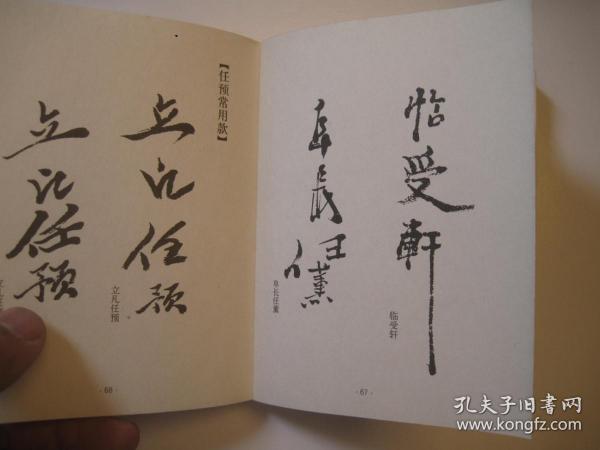 怡受軒
临受轩
阜長任薰
阜长任薰
·67·
【任预常用款】
立凡任预
立凡任预
·68·
立凡任预
孔夫子旧书网
www.kongfz.com